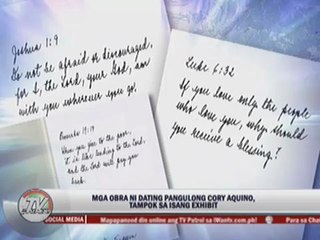 Joshua 1:9
Do not be afraid or discouraged,
for I, the Lord, your God, am
with you wherever you go.
Luke 6:32
If you love only the people
who love you, why should
you receive a blessing?
Proverbs 19:17
When you give to the poor,
it is like lending to the Lord,
and the Lord will pay you
back.
MGA OBRA NI DATING PANGULONG CORY AQUINO,
TAMPOK SA ISANG EXHIBIT
TV
PATROL
SOCIAL MEDIA
Mapapanood din ang TV Patrol sa iWantv.com.ph